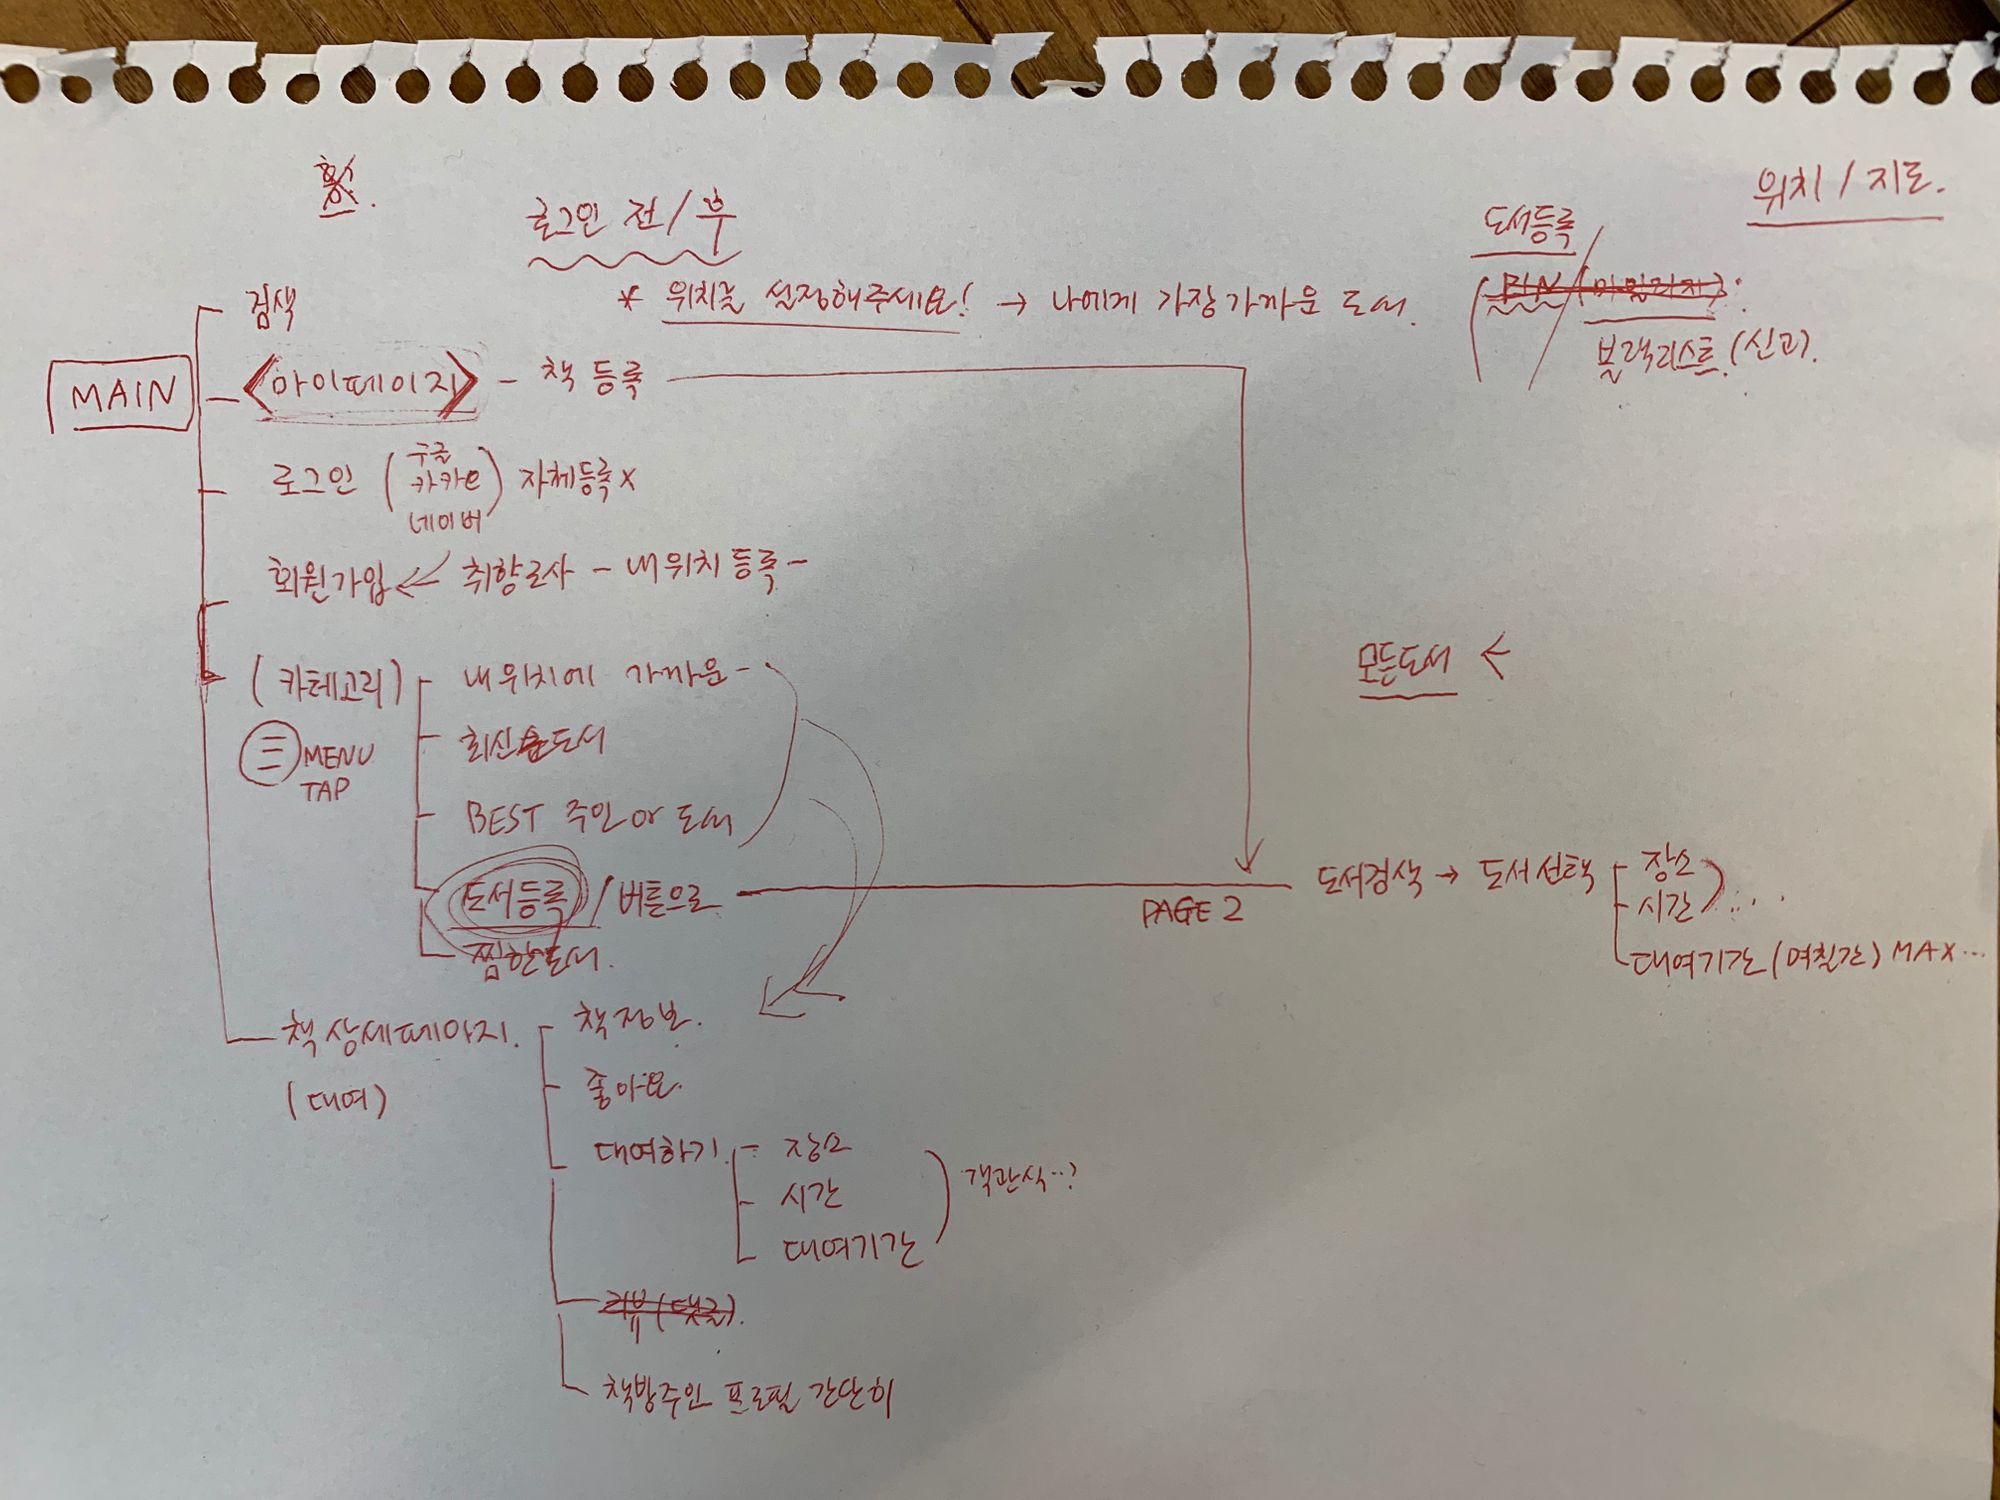 로그인 전/후
위치/지도.
도서등록
* 위치를 설정해주세요! → 나에게 가장 가까운 도서.
PIN (마일리지)
블랙리스트 (신고).
MAIN
검색
<마이페이지> - 책 등록
로그인 (구글 카카오 네이버) 자체등록 x
회원가입 ← 취향조사 - 내 위치 등록 -
모든도서 ←
(카테고리)
내 위치에 가까운 -
MENU
TAP
최신 도서
BEST 주인 or 도서
도서등록 / 버튼으로
PAGE 2
도서검색 → 도서선택
장소
시간 ....
대여기간 (며칠간) MAX ...
찜한도서.
책 상세페이지.
(대여)
책정보.
좋아요.
대여하기
장소
시간
대여기간
객관식...?
리뷰 (댓글).
책방주인 프로필 간단히